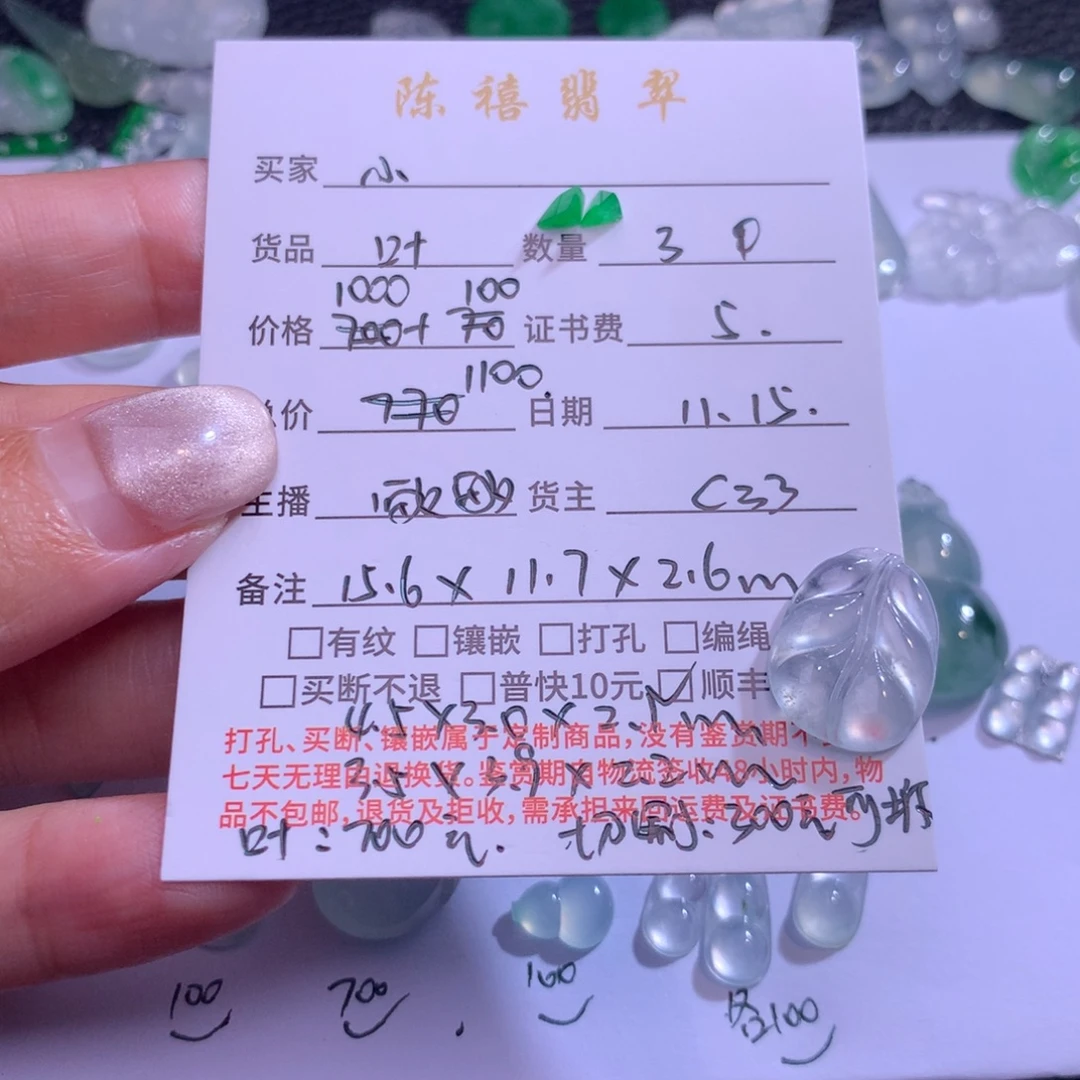 陈禧翡翠
买家 小
货品 叶 数量 3 P
1000 100
价格 700+ 70 证书费 5.
1100.
总价 770 日期 11.15.
主播 货主 C33
备注 15.6 x 11.7 x 2.6m
□有纹 □镶嵌 □打孔 □编绳
□买断不退 □普快10元 ☑顺丰
4.5 x 3.0 x 2.1m
打孔、买断、镶嵌属于定制商品,没有鉴赏期不
3.5 x 3.9 x 2.3m
七天无理由退换货。鉴赏期内物流签收48小时内,物
品不包邮,退货及拒收,需承担来回运费及证书费。
叶:700元. 切割:300元可拆
100 700 100 各100